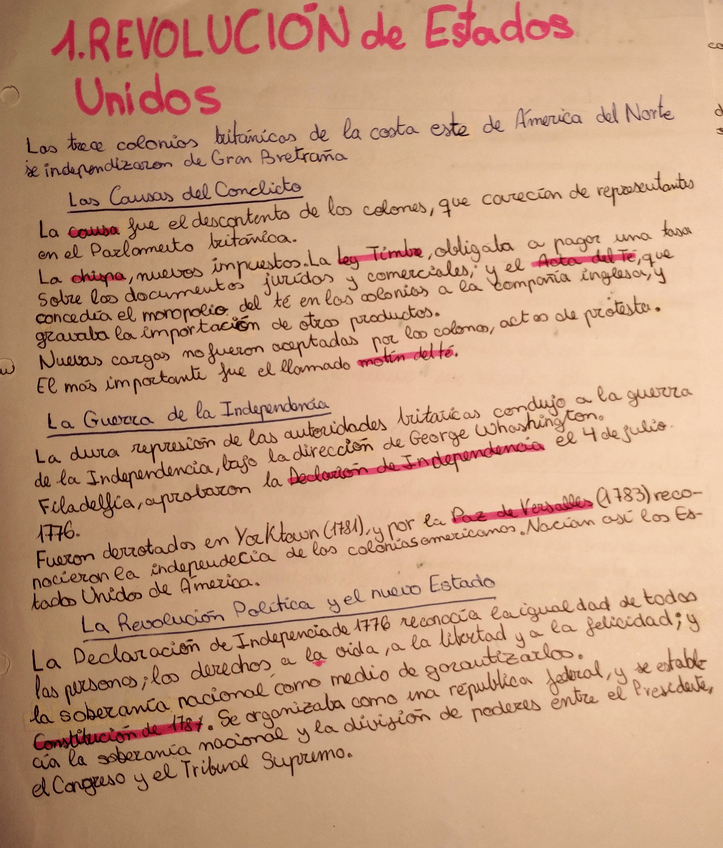 1. REVOLUCIÓN de Estados
Unidos
Las trece colonias britanicas de la costa este de América del Norte
se independizaron de Gran Bretraña
Las Causas del Conclicto
La causa fue el descontento de los colones, que carecían de representantes
en el Parlameuto británica.
La chispa, nuevos impuestos. La ley Timbre, obligaba a pagar una tasa
Sobre los documentos jurídos y comerciales, y el Acta del Té, que
concedía el monopolio del té en las colonias a la compañía inglesa, y
gravaba la importación de otros productos.
Nuevas cargas no fueron aceptadas por los colonos, actos de protesta.
El más importante fue el llamado motín del té.
La Guerra de la Independencia
La dura represión de las autoridades britaicas condujo a la guerra
de la Independencia, bajo la dirección de George Whashington.
Filadelfia, aprobaron la Declarión de Independencia el 4 de julio.
1776.
Fueron derrotados en Yorktown (1781), y por la Paz de Versalles (1783) reco-
nocieron la independecia de las colonias americanas. Nacían así los Es-
tados Unidos de América.
La Revolución Política y el nuevo Estado
La Declaración de Indepencia de 1776 reconocía la igualdad de todas
las personas; los derechos a la vida, a la libertad y a la felicidad; y
la soberanía nacional como medio de garantizarlos.
Constitución de 1787. Se organizaba como una república federal, y se estable-
cía la soberanía nacional y la división de poderes entre el Presidente,
el Congreso y el Tribunal Supremo.